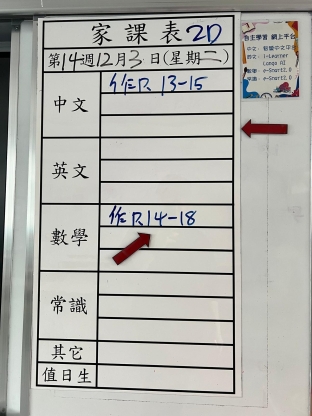 家課表 2D
第14週12月3日(星期二)
中文
作P. 13-15
英文
數學
作P.14-18
常識
其它
值日生
自主學習 網上平台
中文：智愛中文平台
英文：i-Learner
Lango AI
數學：e-Smart2.0
常識：e-Smart2.0